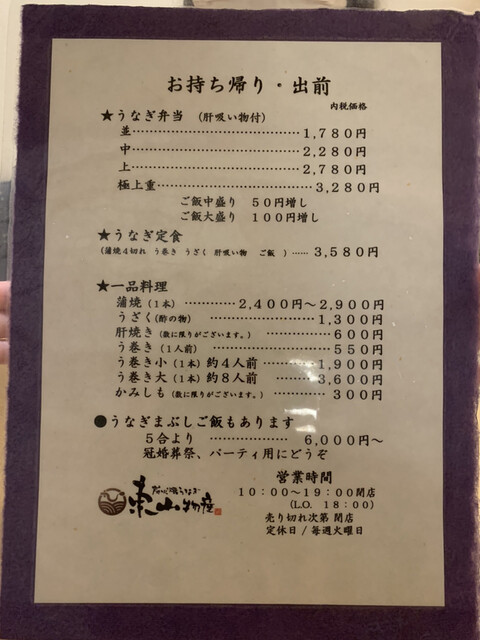 お持ち帰り・出前
内税価格
★うなぎ弁当 (肝吸い物付)
並…………………………1,780円
中…………………………2,280円
上…………………………2,780円
極上重……………………3,280円
ご飯中盛り 50円増し
ご飯大盛り 100円増し
★うなぎ定食
(蒲焼4切れ う巻き うざく 肝吸い物 ご飯 )……3,580円
★一品料理
蒲焼(1本)…………2,400円〜2,900円
うざく(酢の物)………………1,300円
肝焼き(数に限りがございます。)…………600円
う巻き(1人前)………………550円
う巻き小(1本)約4人前………1,900円
う巻き大(1本)約8人前………3,600円
かみしも(数に限りがございます。)…………300円
●うなぎまぶしご飯もあります
5合より………………6,000円〜
冠婚葬祭、パーティ用にどうぞ
営業時間
10:00〜19:00閉店
(L.O. 18:00)
売り切れ次第 閉店
定休日/毎週火曜日
東山物産